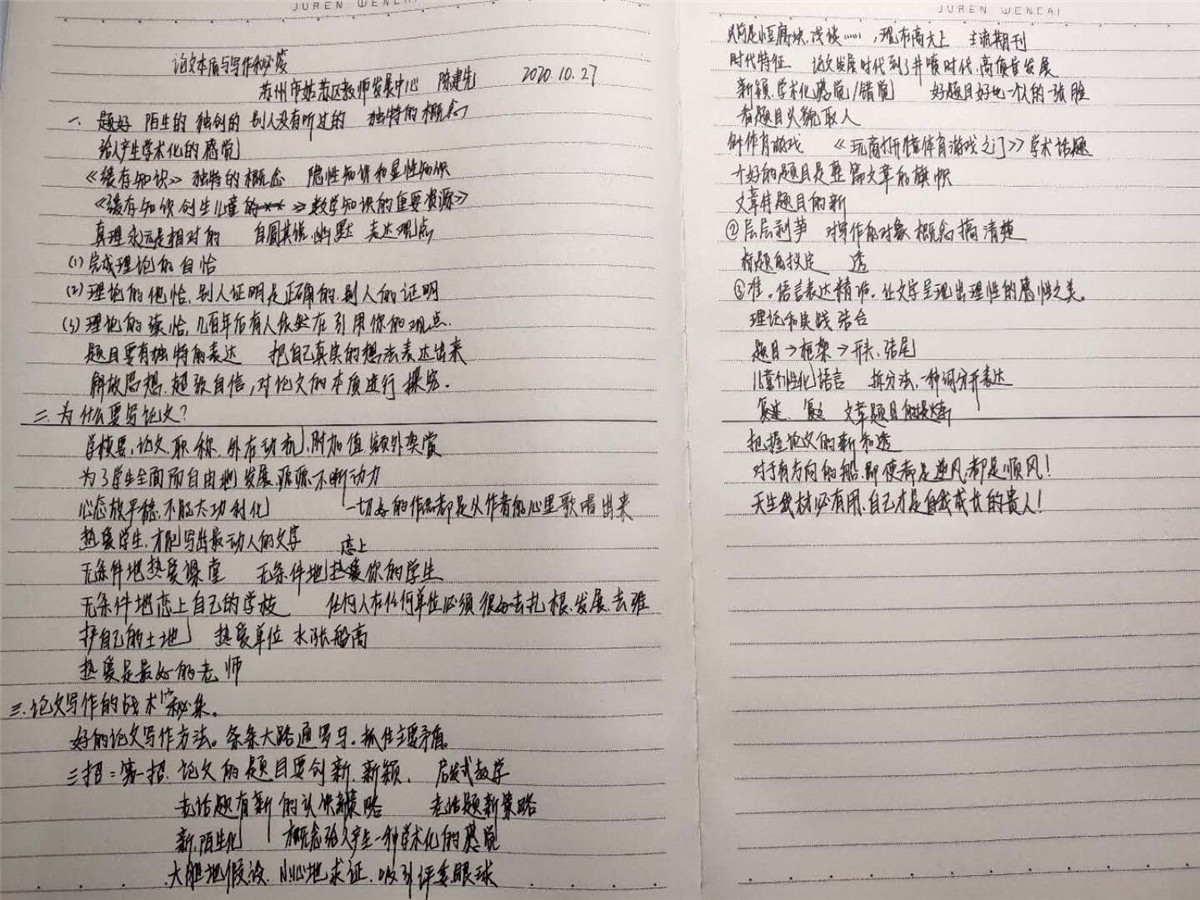 JUREN WENCAI
论文本质与写作秘笈
苏州市姑苏区教师发展中心 陈建先 2020.10.27
一、题好 陌生的 独创的 别人没有听过的 独特的概念
给人产生学术化的感觉
《缓存知识》独特的概念 隐性知识和显性知识
《缓存知识创生儿童的 》数学知识的重要资源》
真理永远是相对的 自圆其说、幽默 表达观点
(1)完成理论的自恰
(2)理论的他恰,别人证明是正确的,别人的证明
(3)理论的续恰,几百年后有人依然在引用你的观点.
题目要有独特的表达 把自己真实的想法表达出来
解放思想,超强自信,对论文的本质进行探究.
二、为什么要写论文?
学校要,论文,职称,外在动机,附加值,额外奖赏
为了学生全面而自由地发展,源源不断动力
心态放平稳,不能太功利化 一切好的作品都是从作者的心里歌唱出来
热爱学生,才能写出最动人的文字
无条件地热爱课堂 无条件地热爱你的学生
恋上
无条件地恋上自己的学校 任何人在任何单位必须很好去扎根,发展,去维
护自己的土地 热爱单位 水涨船高
热爱是最好的老师
三、论文写作的战术 秘集。
好的论文写作方法。条条大路通罗马。抓住主要矛盾。
三招:第一招.论文的题目要创新.新颖. 启发式教学
老话题有新的认识 策略 老话题新策略
新.陌生化 概念给人产生一种学术化的感觉
大胆地假设,小心地求证.吸引评委眼球
JUREN WENCAI
豆腐块,浅谈……,现在高大上 主流期刊
时代特征 论文发展时代到了井喷时代,高质量发展
新颖.学术化感觉/错觉 好题目好比一个人的脸
看题目以貌取人
创作有游戏 《玩商打开 体育游戏之门》学术话题
一个好的题目是整篇文章的旗帜
文章特题目的新
②层层剥笋 对写作的对象概念搞清楚
标题的拟定 透
③准。语言表达精准。让文字呈现出理性的感性之美。
理论和实践结合
题目→框架→开头、结尾
儿童个性化语言 拆分法,一种词分开表达
文章题目的提炼
把握论文的新和透
对于有方向的船,即使都是逆风,都是顺风!
天生我材必有用,自己才是自我成长的贵人!